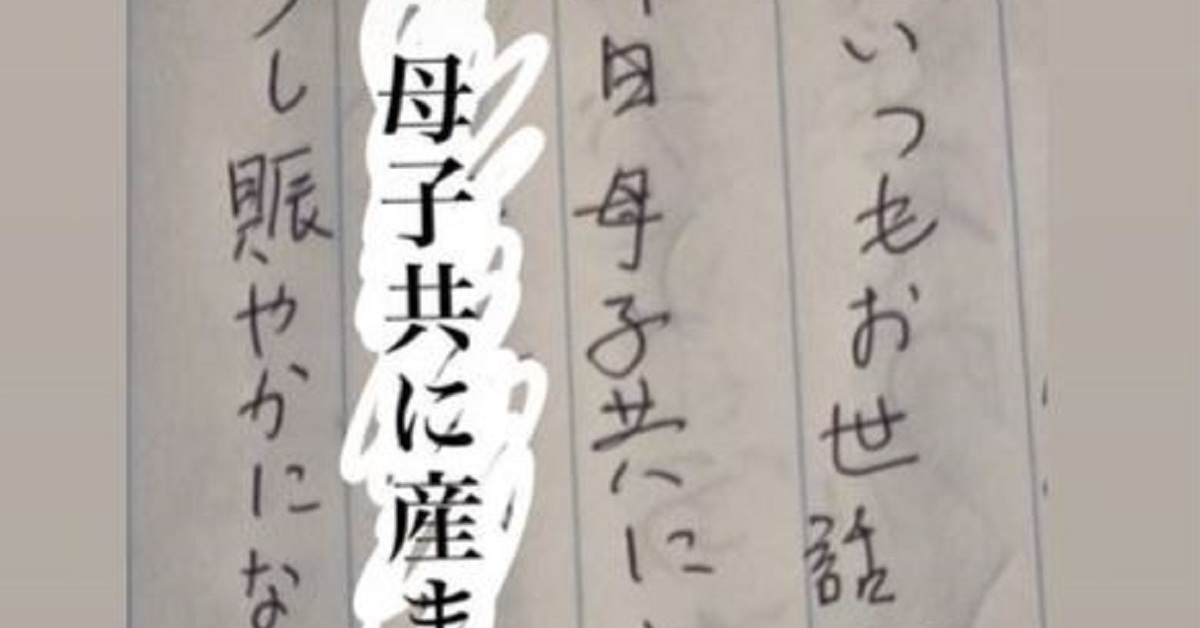 いつもお世話
日母子共に
母子共に産ま
し賑やかにな